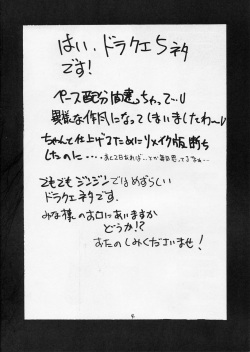 はい、ドラクエ5ネタ
です!
ペース配分間違っちゃって…
異様な作風になってしまいましたわ〜
ちゃんと仕上げるためにリメイク版断ち
したのに・・・・あと2日あれば…とか毎回思ってるなぁ…
でもでもジンジンではめずらしい
ドラクエネタです。
みな様のお口にあいますか
どうか!?
おたのしみくださいませ!